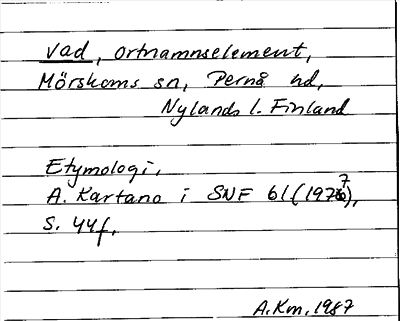 vad, ortnamnselement,
Mörskoms sn, Pernå hd,
Nylands l. Finland
Etymologi.
A. Kartano i SNF 61 (1977),
S. 44f.
A.Km. 1987